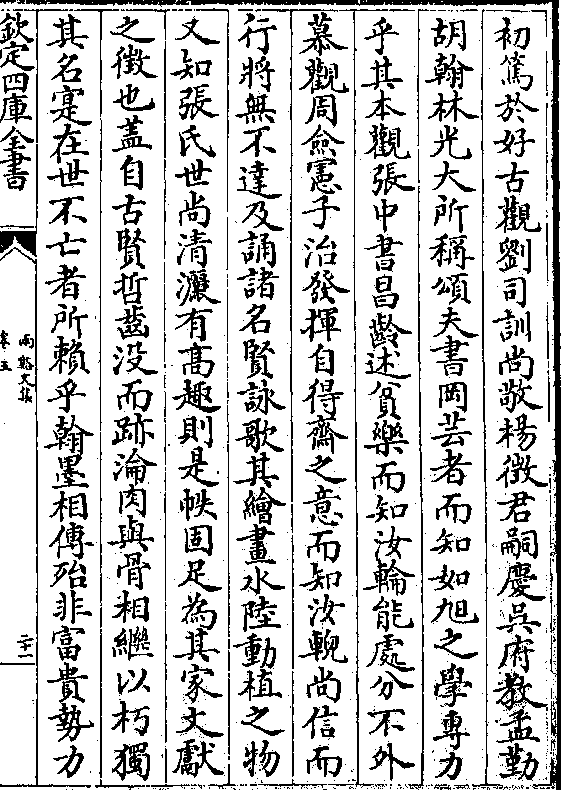 初篤於好古觀劉司訓尚敬楊徴君嗣慶吳府教孟勤
胡翰林光大所稱頌夫書岡芸者而知如旭之學專力
乎其本觀張中書昌齡述貧樂而知汝輪能處分不外
慕觀周僉憲子治發揮自得齋之意而知汝輗尚信而
行將無不達及誦諸名賢詠歌其繪畫水陸動植之物
又知張氏世尚清灑有髙趣則是帙固足為其家文獻
之徵也蓋自古賢哲齒没而跡淪肉與骨相繼以朽獨
其名寔在世不亡者所頼乎翰墨相傳殆非富貴勢力
欽定四庫全書
兩谿文集
卷五
二十一